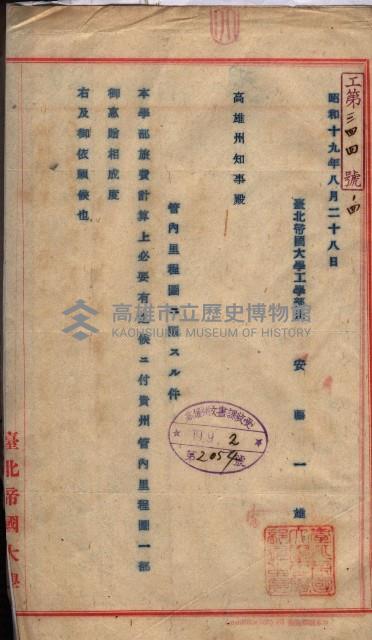 工第三四四號ノ四
昭和十九年八月二十八日
臺北帝國大學工學部長
安藤一雄
高雄州知事殿
管內里程圖ニ關スル件
本學部旅費計算上必要有之候ニ付貴州管內里程圖一部
御惠贈相成度
右及御依賴候也
19.9.2
第2054號
臺北帝國大學
高雄市立歷史博物館
KAOHSIUNG MUSEUM OF HISTORY